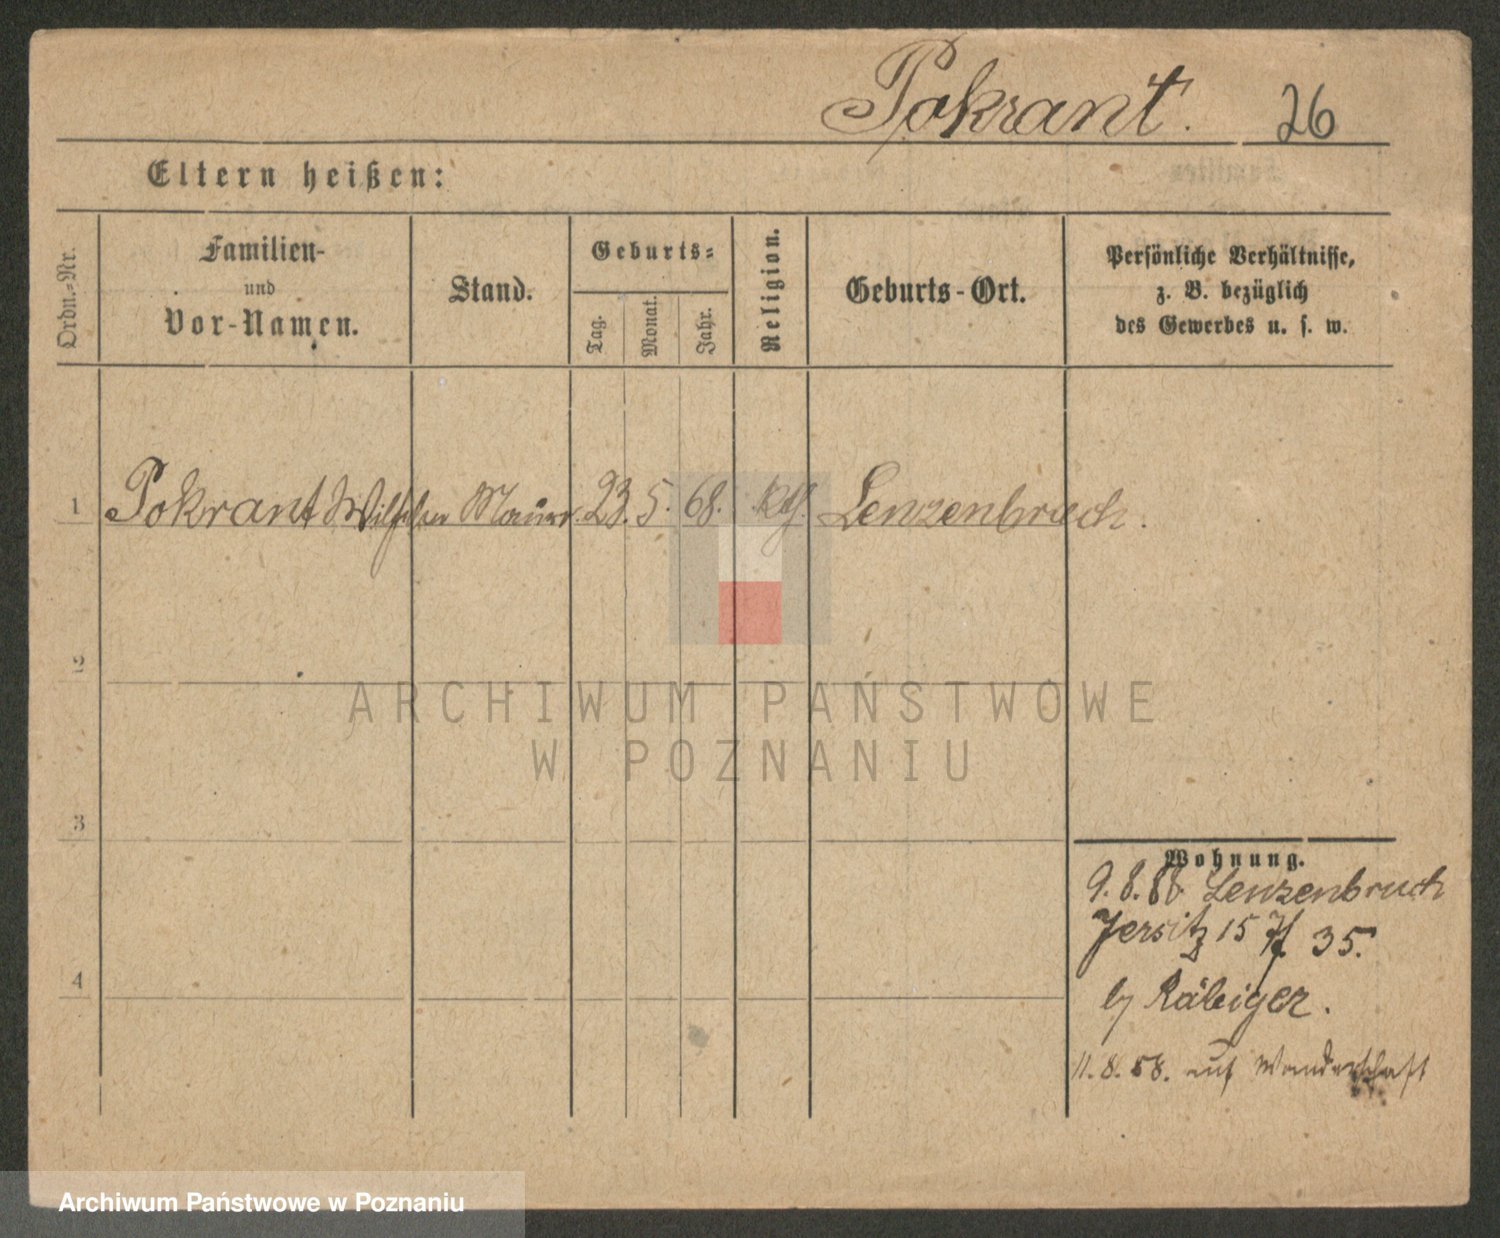 Pokrant. 26
Eltern heißen:
Ordn.-Nr.
Familien-
und
Vor-Namen.
Stand.
Geburts-
Tag.
Monat.
Jahr.
Religion.
Geburts-Ort.
Persönliche Verhältnisse,
z. B. bezüglich
des Gewerbes u. s. w.
1 Pokrant Wilhelm Maurer. 23. 5. 68. Lenzenbruch.
2
3
4
ARCHIWUM PAŃSTWOWE
W POZNANIU
Wohnung.
9. 8. 88. Lenzenbruch
Jersitz 15 35.
by Räbiger.
11. 8. 88. auf Wanderschaft
Archiwum Państwowe w Poznaniu